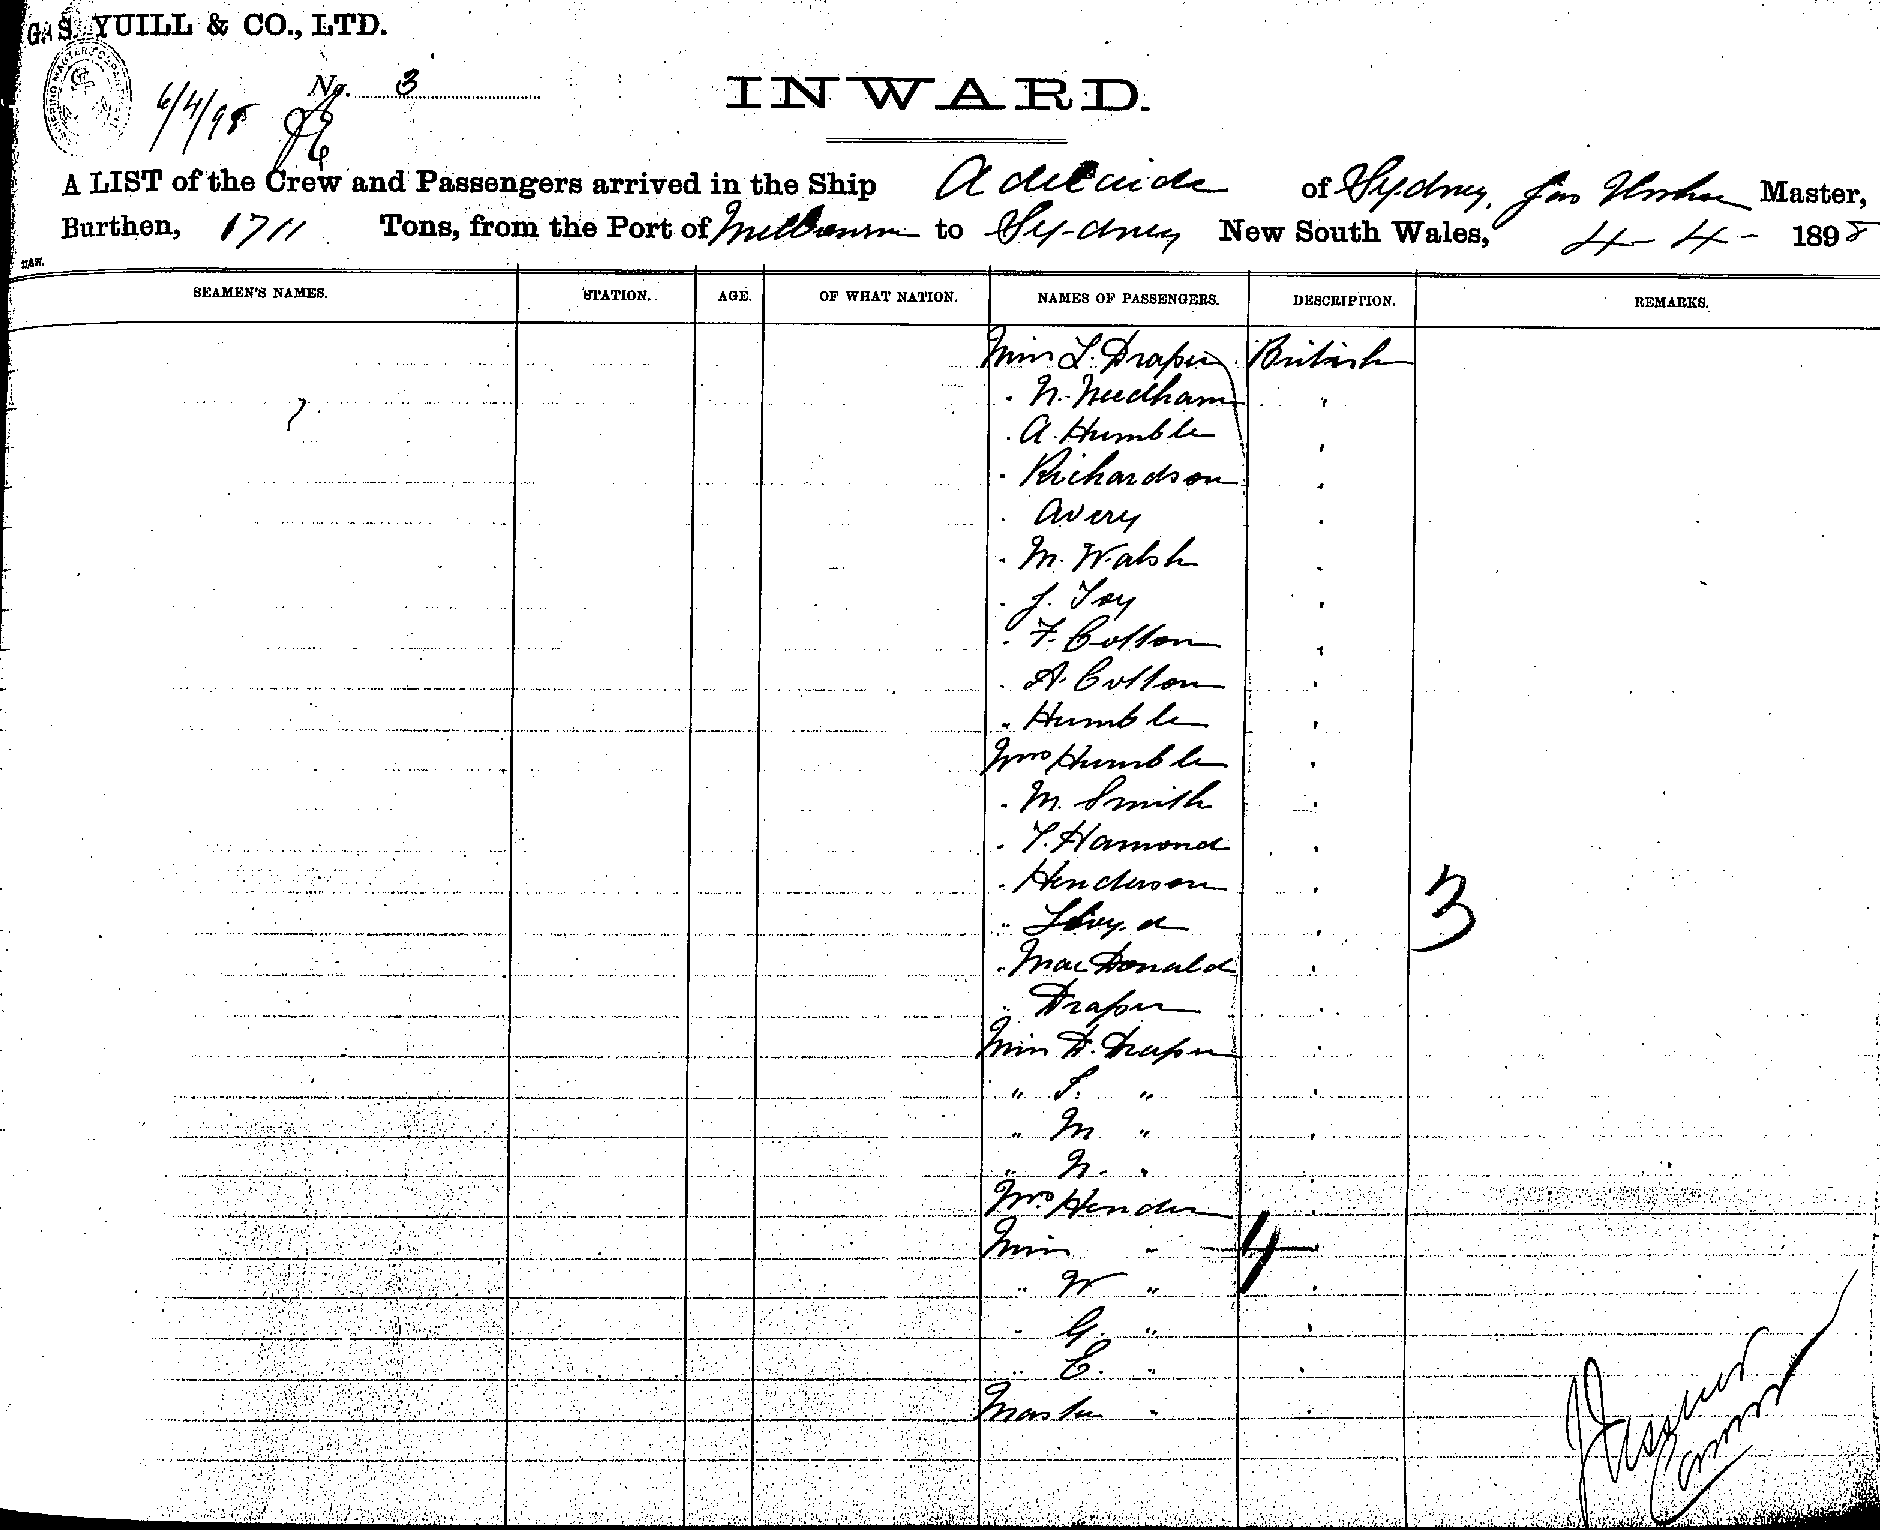 GAS. YUILL & CO., LTD.
6/4/98
No. 3
INWARD.
A LIST of the Crew and Passengers arrived in the Ship Adelaide of Sydney, Jas Master,
Burthen, 1711 Tons, from the Port of Melbourne to Sydney New South Wales, 4-4- 1898
SEAMEN'S NAMES. STATION. AGE. OF WHAT NATION. NAMES OF PASSENGERS. DESCRIPTION. REMARKS.
Miss L. Draper British
. N. Needham "
. A. Humble "
. Richardson "
. Avery "
. M. Walsh "
. J. Toy "
. F. Cotton "
. A. Cotton "
" Humble "
Mrs Humble "
. M. Smith "
. T. Hamond "
. Henderson "
" Lloyd "
. MacDonald "
" Draper "
Miss D. Draper "
" S. " "
" M " "
" N. " "
Mrs Hender "
Miss " "
" W " "
" G. " "
" E. " "
Master " "
3
4